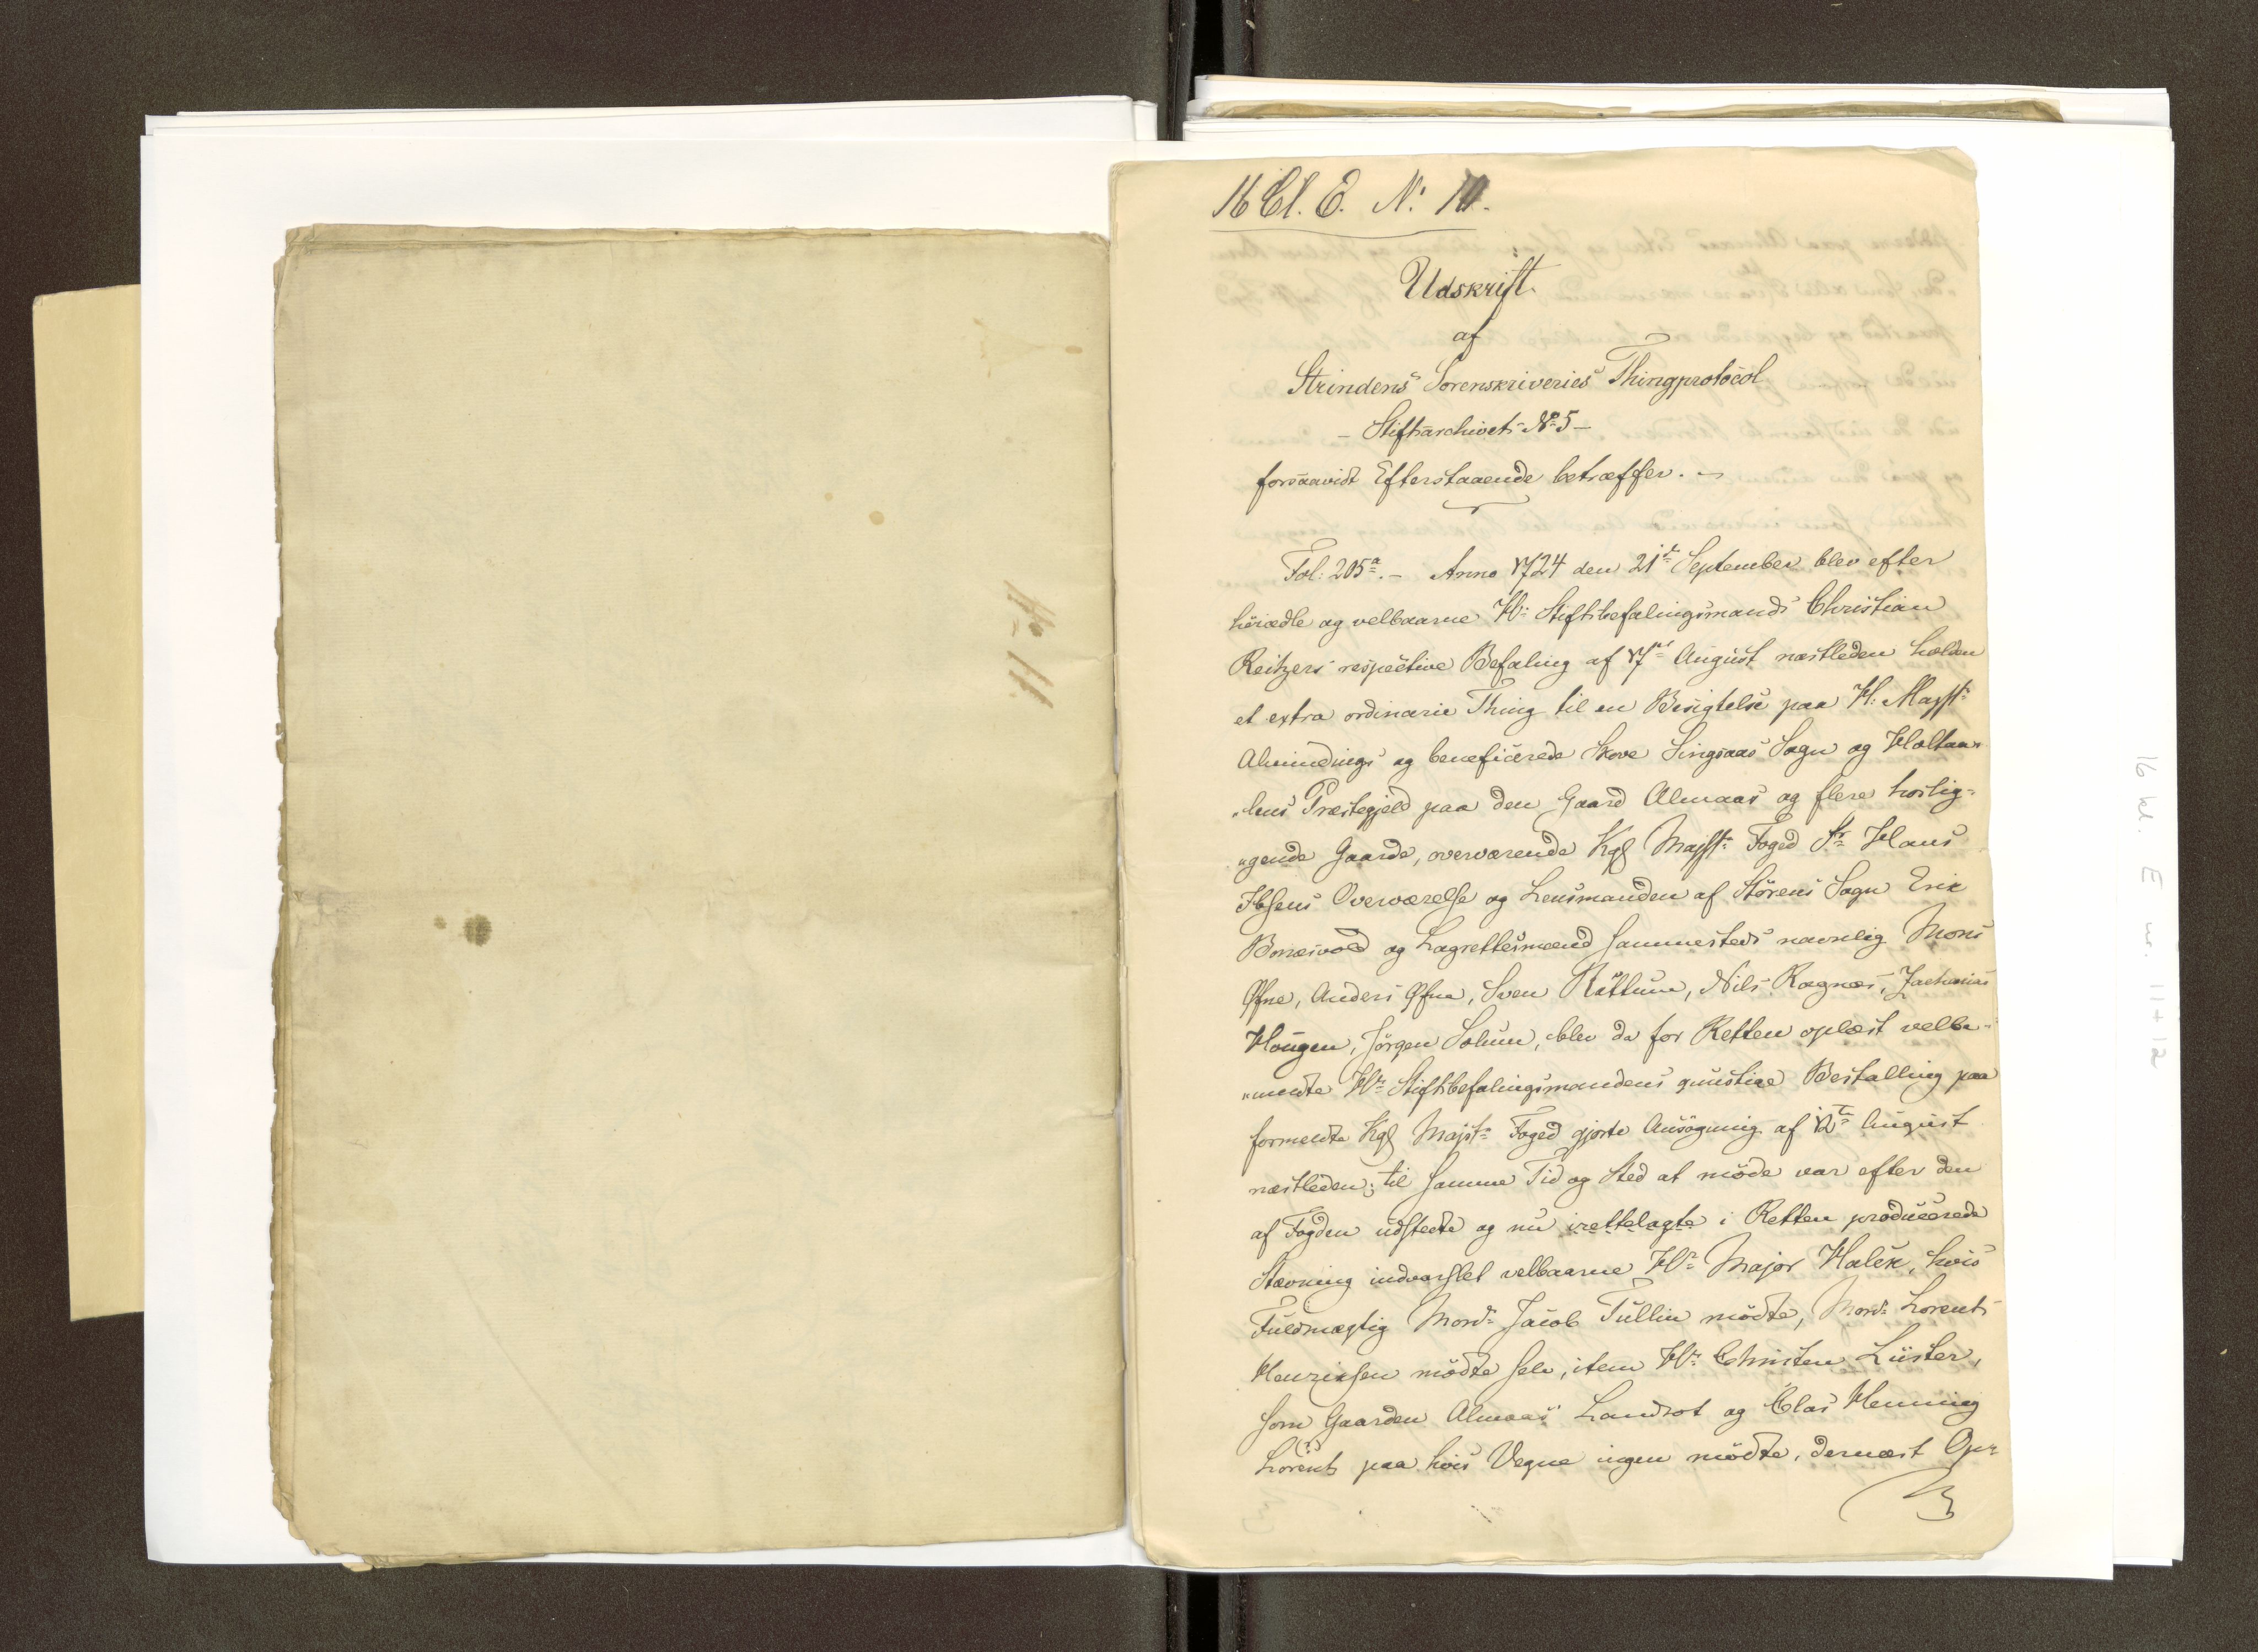 16 Cl. E. N: 11.
Udskrift
af
Strindens Sorenskriveries Thingprotocol
- Stiftsarchivets No 5 -
forsaavidt Efterstaaende betræffer. -
Fol: 205a. - Anno 1724 den 21de September blev efter
höiædle og velbaarne Hr. Stiftsbefalingsmands Christian
Reitzers respective Befaling af 17de August næstleden holden
et extra ordinarie Thing til en Besigtelse paa H: Mayst:
Almindings og beneficerede Skove Singsaas Sogn og Holtaa„
„lens Præstegjeld paa den Gaard Almaas og flere hoslig„
„gende Gaarde, overværende Kgl Majsts Foged Sr Hans
Ibsens Overværelse og Lensmanden af Störens Sogn Erik
Bonesvold og Lagrettesmænd sammesteds navnlig Mons
Øfne, Anders Øfne, Sven Rættum, Nils Rognæs, Zacharias
Hougen, Jörgen Solum, blev da for Retten oplæst velbe„
„meldte Hr Stiftsbefalingsmandens gunstige Bestalling paa
formeldte Kgl Majsts Foged gjorte Ansögning af 12te August
næstleden; til samme Tid og Sted at möde var efter den
af Fogden udstedte og nu irettelagte i Retten producerede
Stævning indvarslet velbaarne Hr Major Halck, hvis
Fuldmægtig Monsr Jacob Tullin mödte, Monsr Lorents
Henriksen mödte selv, item Hr Christen Lüster,
som Gaarden Almaas Landrot og Clas Henning
Lorents (?) paa hvis Vegne ingen mödte, dernæst Op„
No 11.
16 kl. E nr. 11+12